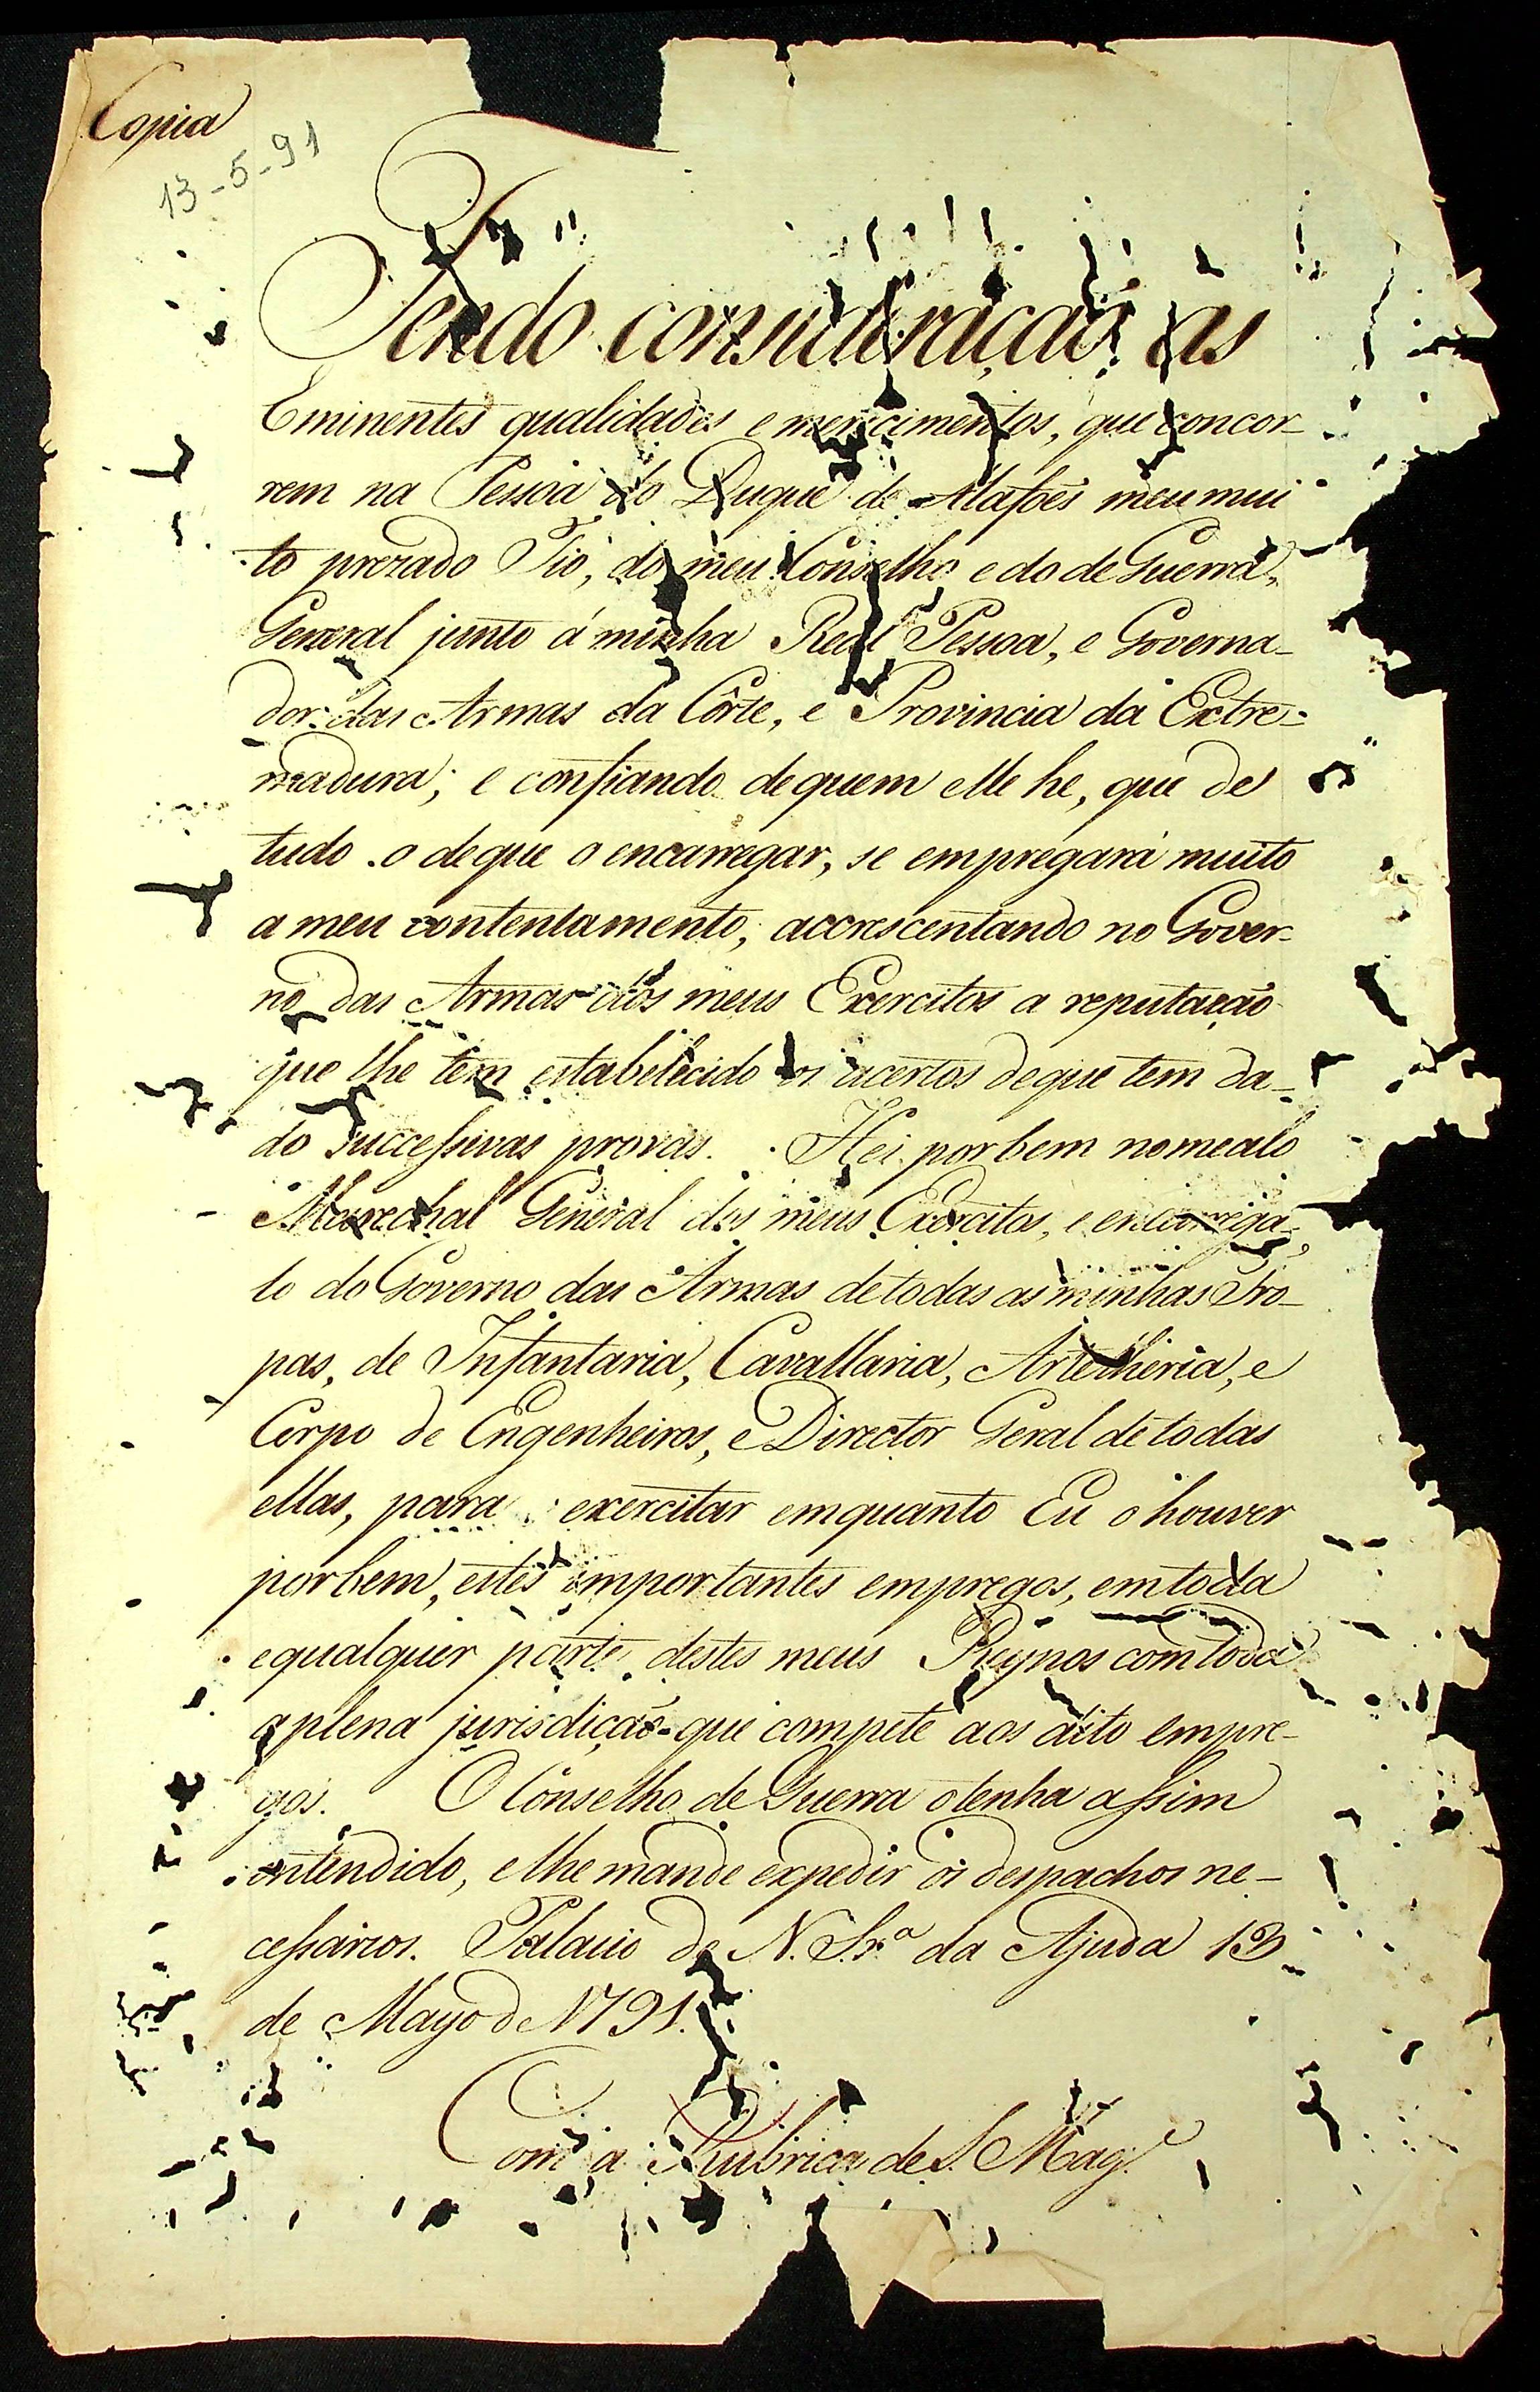 Copia
13-5-91
Tendo consideração ás
Eminentes qualidades e merecimentos, que concor-
rem na Pessoa do Duque de Alafões meu mui
to prezado Tio, do meu Conselho e do de Guerra,
General junto á minha Real Pessoa, e Governa-
dor das Armas da Côrte, e Provincia da Extre-
madura; e confiando de quem elle he, que de
tudo o de que o encarregar, se empregará muito
a meu contentamento, accrescentando no Gover-
no das Armas dos meus Exercitos a reputação
que lhe tem estabelecido os acertos de que tem da-
do successivas provas. Hei por bem nomealo
Marechal General dos meus Exercitos, e encarrega-
lo do Governo das Armas de todas as minhas Tro-
pas, de Infantaria, Cavallaria, Artelheria, e
Corpo de Engenheiros, e Director Geral de todas
ellas, para exercitar emquanto Eu o houver
por bem, estes importantes empregos, em toda
e qualquer parte destes meus Reynos com toda
a plena jurisdição que compete aos dito empre-
gos. O Conselho de Guerra o tenha assim
entendido, e lhe mande expedir os despachos ne-
cessarios. Palacio de N. Sr.ª da Ajuda 13
de Mayo de 1791.
Com a Rubrica de S. Mag.e